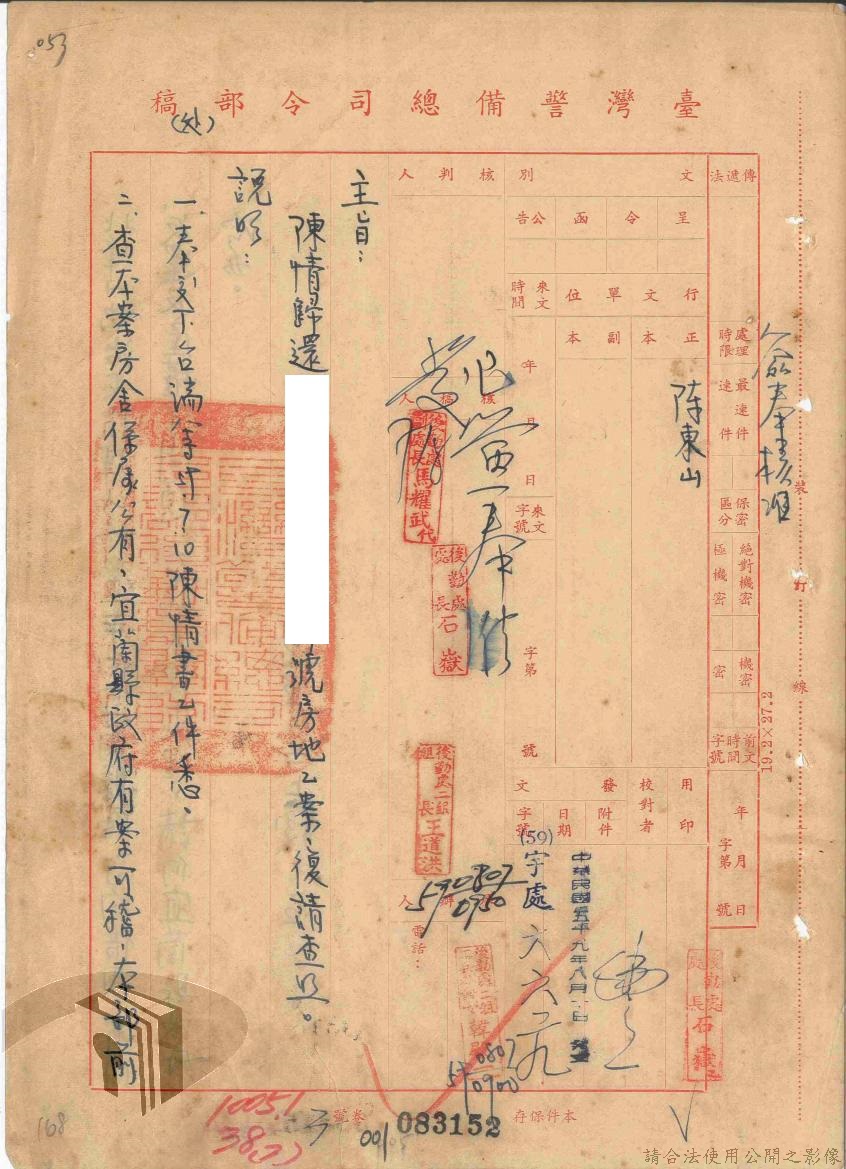 053
臺灣警備總司令部稿
(处)
傳遞法
處理時限
最速件
速件
保密區分
絕對機密
極機密
機密
密
前文時間字號
年月日
字第號
簽奉核准
裝
訂
線
19.2×27.2
文別
呈
令
函
公告
行文單位
來文時間
正本
副本
陈東山
年
月
日
來文字號
字第
號
用印
校對者
發文
附件
日期
字號
中華民國五十九年八月
(59)
字處
六六二九
核判人
核稿人
後勤處
處長馬耀武代
後勤處處長石嶽
後勤處二組組長王道洪
後勤處處長石嶽
590807
0950
電話：
0807
0900
主旨：
陳情歸還
號房地乙案，復請查照。
說明：
一、奉交下台端
陳情書乙件悉。
二、查本案房舍係屬公有，宜蘭縣政府有案可稽，本部前
本件保存
卷號
083152
1005.1
168
請合法使用公開之影像